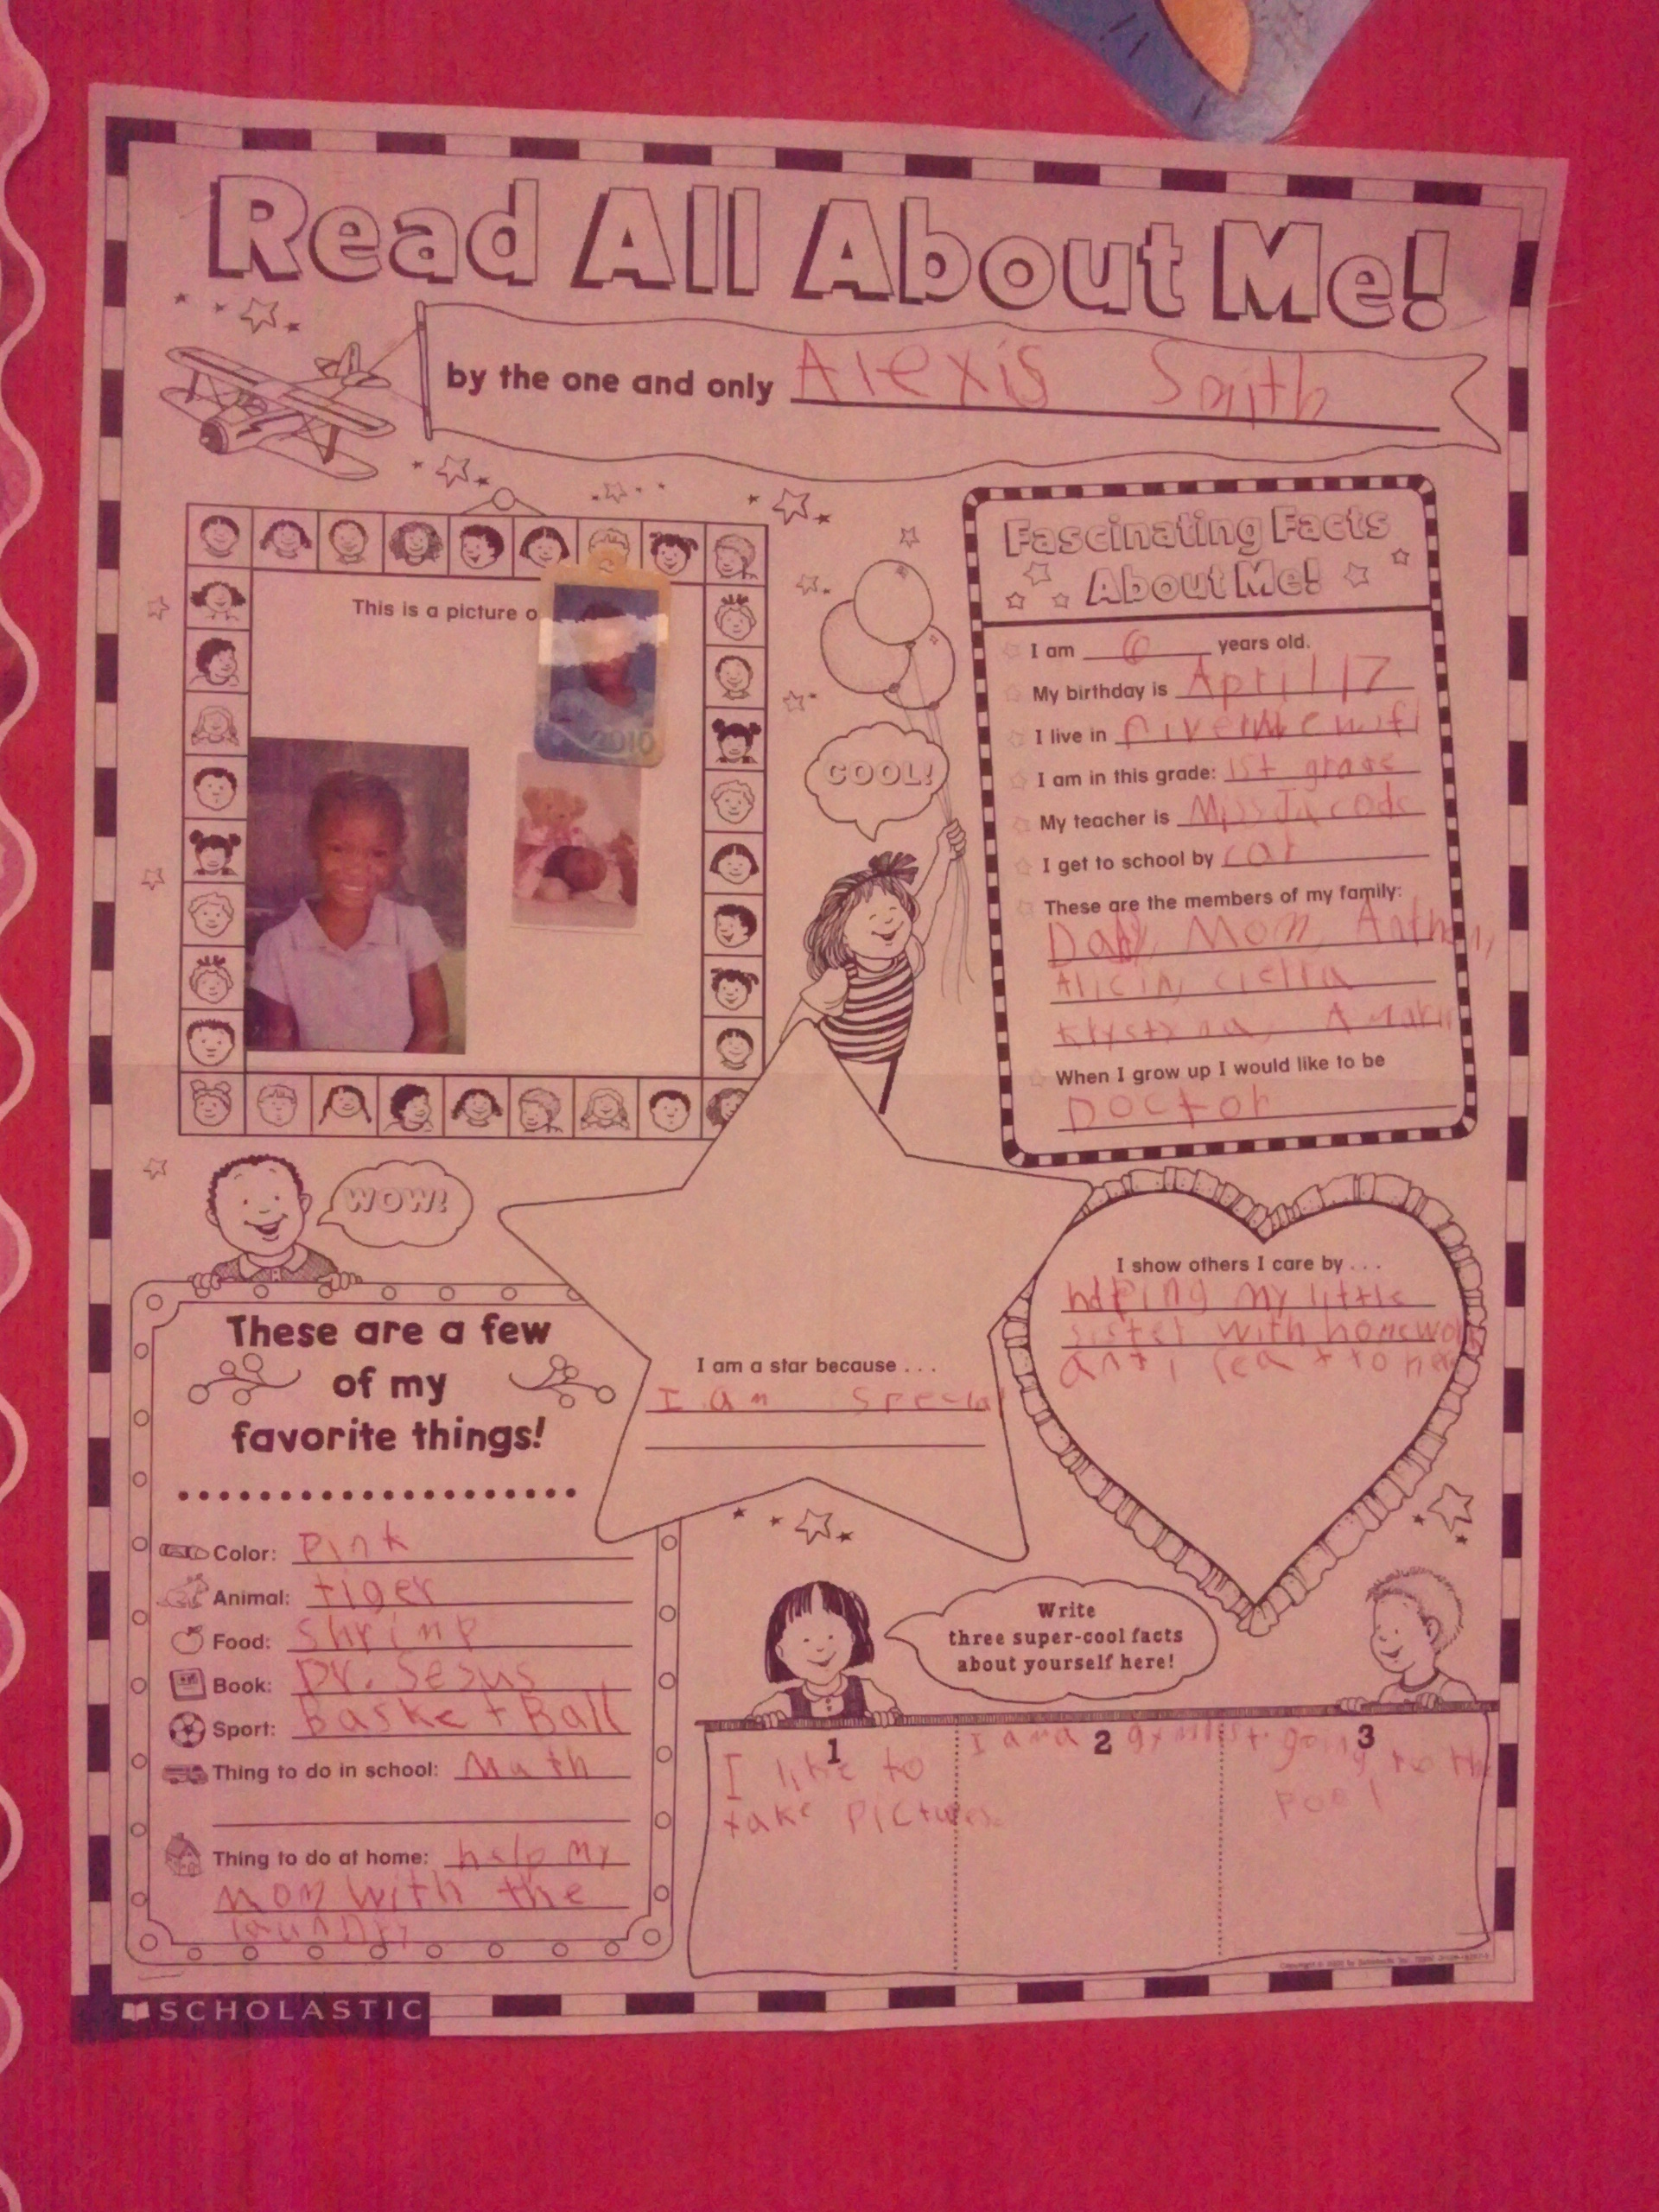 Read All About Me!
by the one and only Alexis Smith
This is a picture o
2010
COOL!
Fascinating Facts
About Me!
I am 6 years old.
My birthday is April 17
I live in
I am in this grade: 1st grade
My teacher is Miss
I get to school by car
These are the members of my family:
Dady, Mom, Anthony,
Alicia, cierra
Krystyna,
When I grow up I would like to be
Doctor
WOW!
These are a few
of my
favorite things!
Color: Pink
Animal: tiger
Food: Shrimp
Book: Dr. Sesus
Sport: Basket Ball
Thing to do in school: Math
Thing to do at home: help my
mom with the
laundry
I am a star because . . .
I am special
I show others I care by . . .
helping my little
sister with homework
Write
three super-cool facts
about yourself here!
1
I like to
take Pictures.
2
I am a
3
going to the
pool
SCHOLASTIC